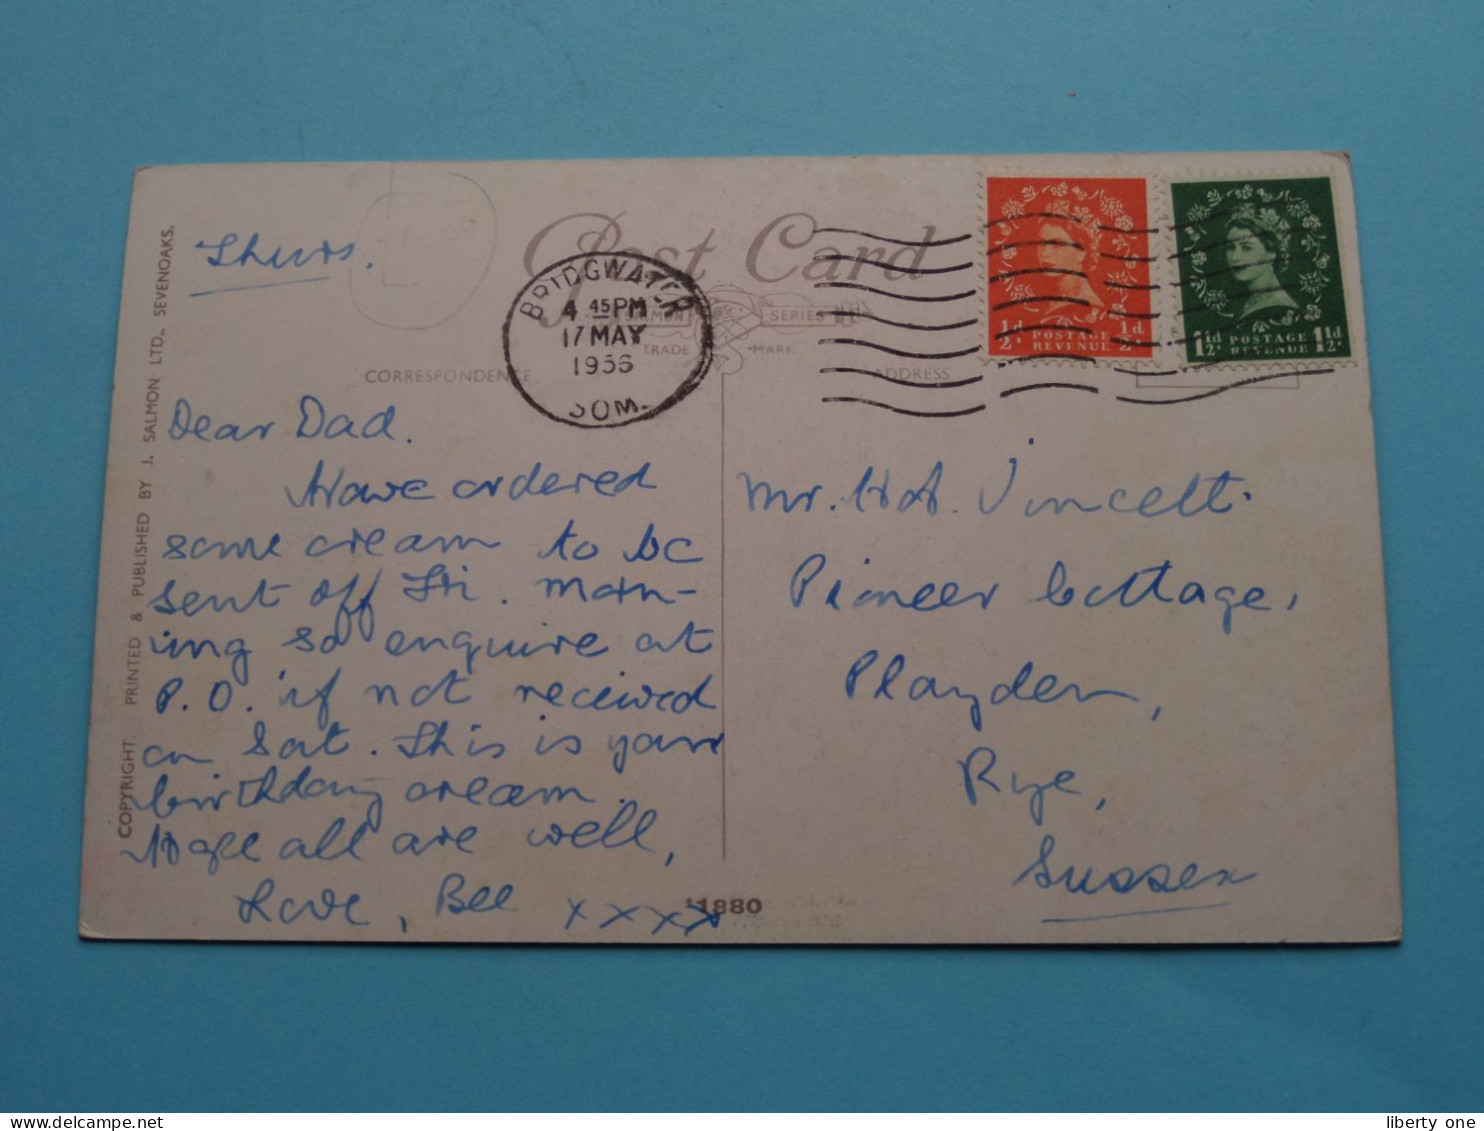 Post Card
SALMON SERIES
TRADE MARK
CORRESPONDENCE
ADDRESS
BRIDGWATER
4 45 PM
17 MAY
1956
SOM.
½d POSTAGE REVENUE ½d
1½d POSTAGE REVENUE 1½d
COPYRIGHT. PRINTED & PUBLISHED BY J. SALMON LTD., SEVENOAKS.
Thurs.
Dear Dad.
Have ordered
some cream to be
sent off Fri. morn-
ing so enquire at
P.O. if not received
on Sat. This is your
birthday cream.
Hope all are well,
Love, Bee xxxx
Mr. Vincett.
Pioneer Cottage,
Playden,
Rye,
Sussex
1880
liberty one